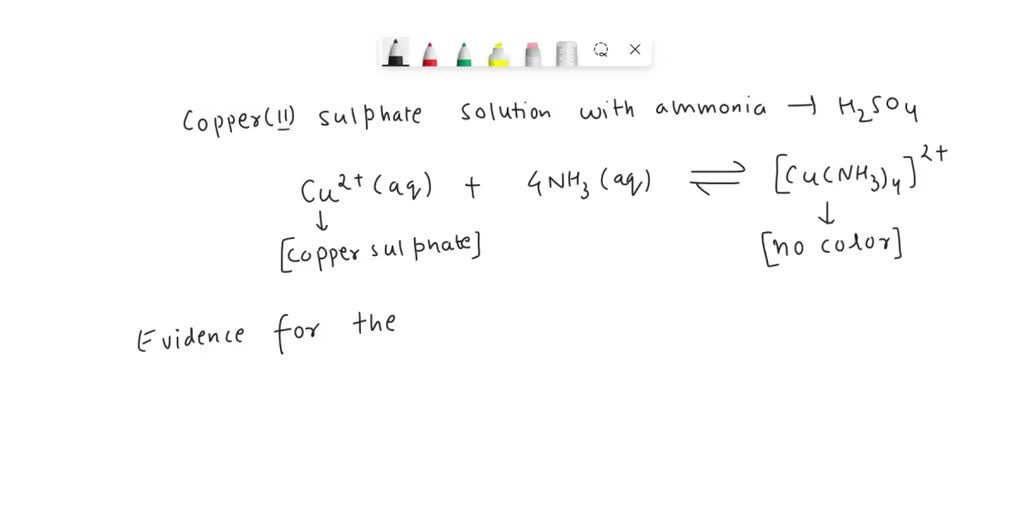 Copper(II) sulphate solution with ammonia → H₂SO₄
Cu²⁺(aq) + 4NH₃(aq) ⇌ [Cu(NH₃)₄]²⁺
↓ ↓
[copper sulphate] [no color]
Evidence for the